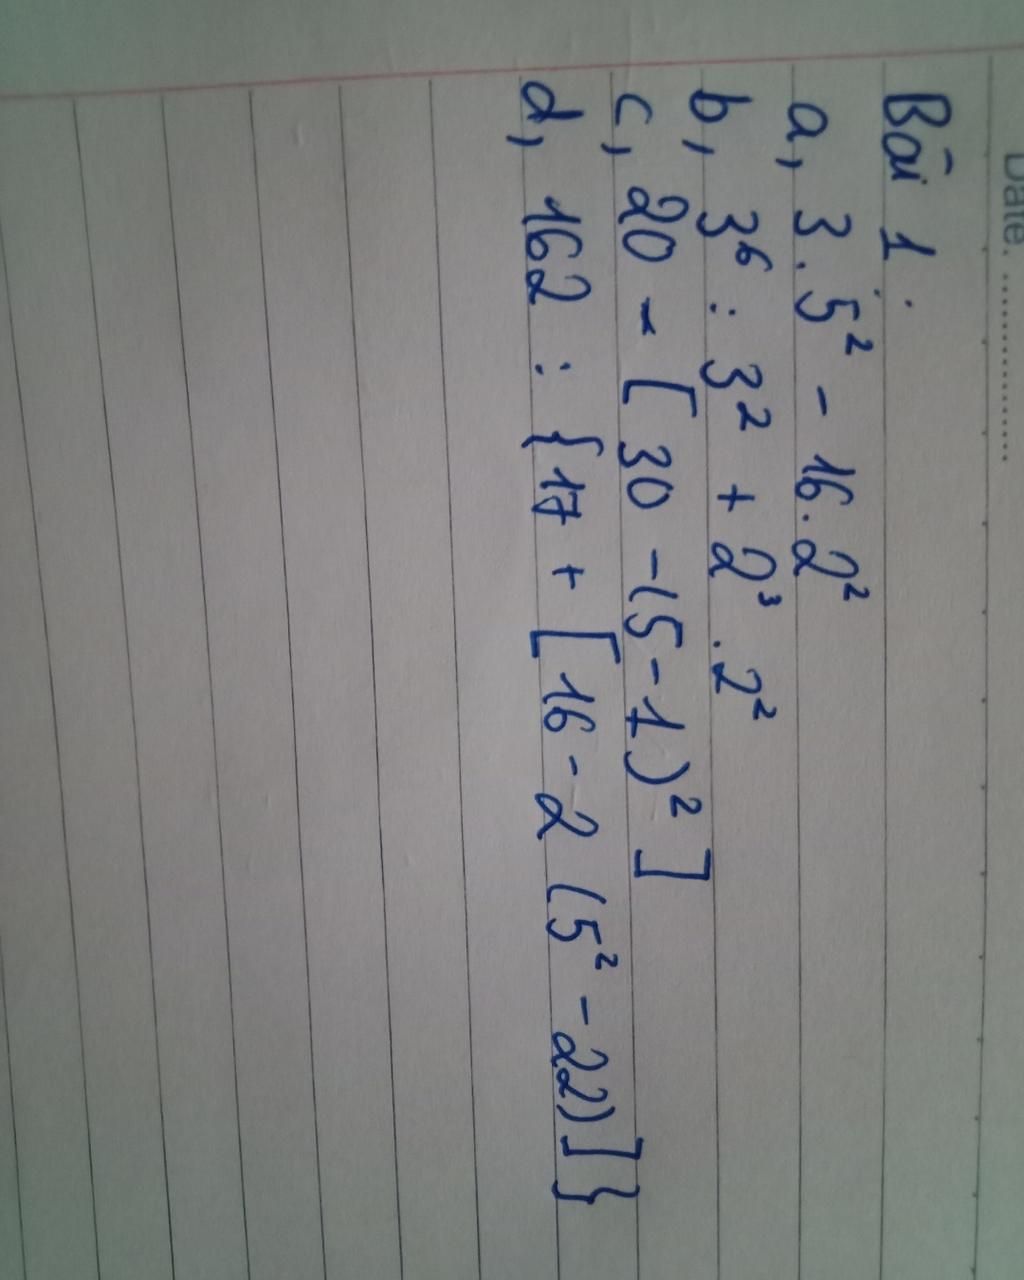 Date. ....................
Bài 1:
a, 3.5² - 16.2²
b, 3⁶ : 3² + 2³ . 2²
c, 20 - [ 30 - (5-1)² ]
d, 162 : {17 + [16 - 2 (5² - 22)]}